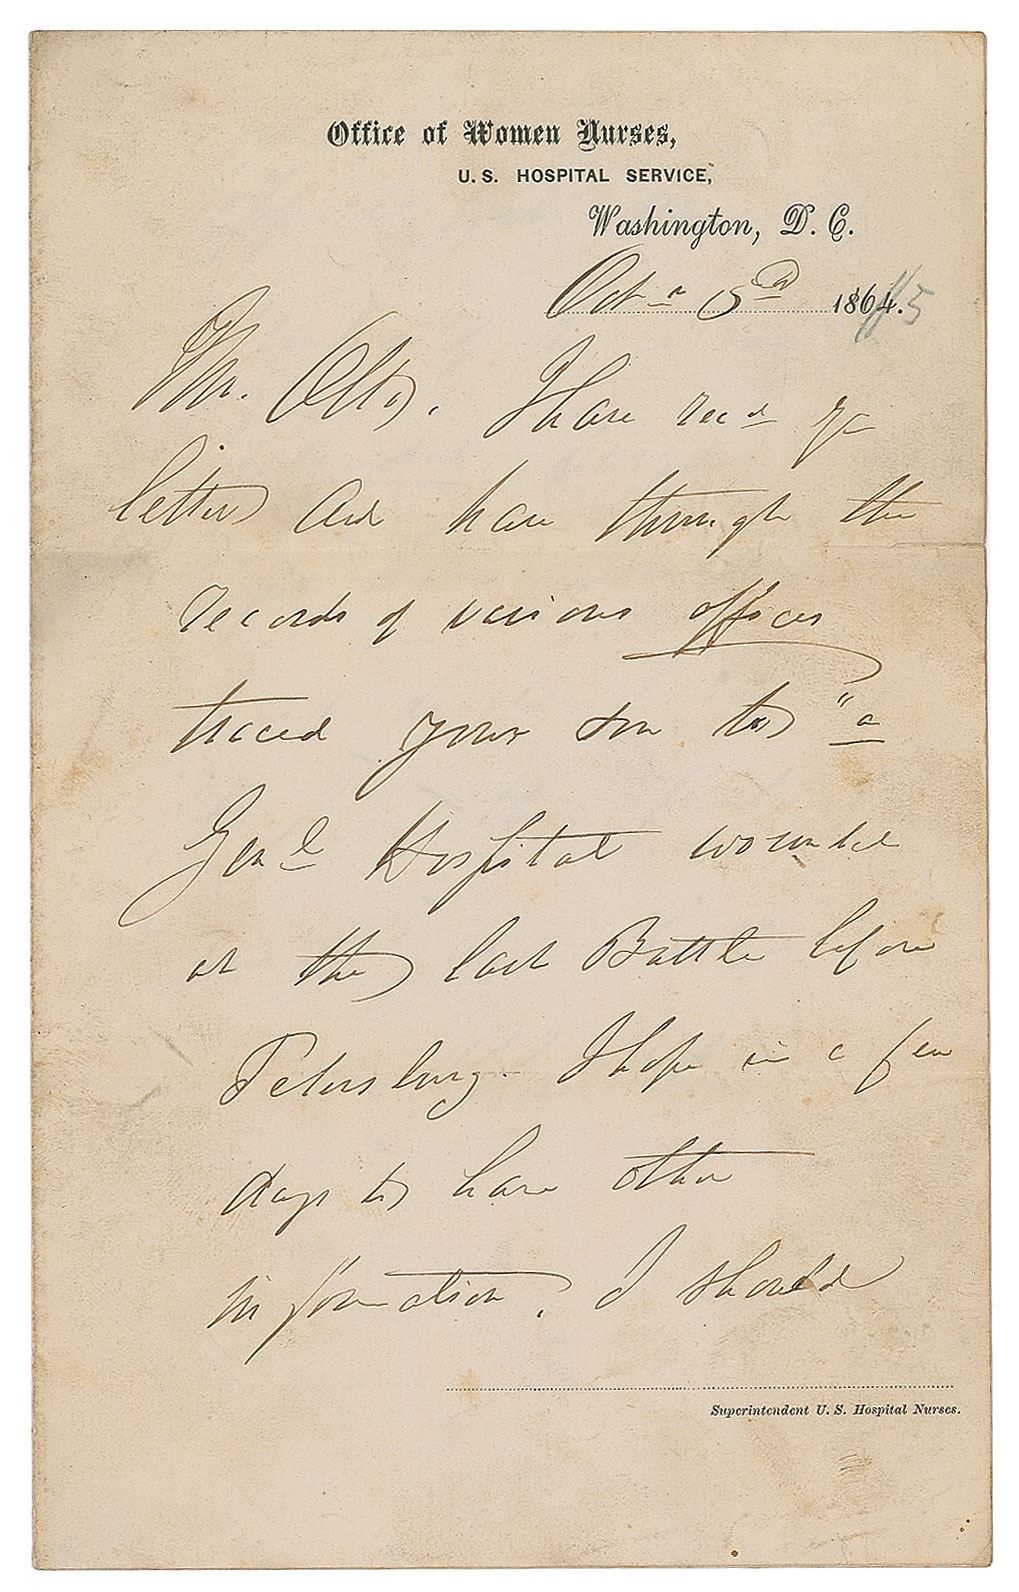 Office of Women Nurses,
U. S. HOSPITAL SERVICE,
Washington, D. C.
Oct 1864. 65
Mr. I have recd yr
letter and have through the
records of various offices
traced your son to "a
Genl Hospital wounded
at the last Battle before
Petersburg. I hope in a few
days to have other
information. I should
Superintendent U. S. Hospital Nurses.